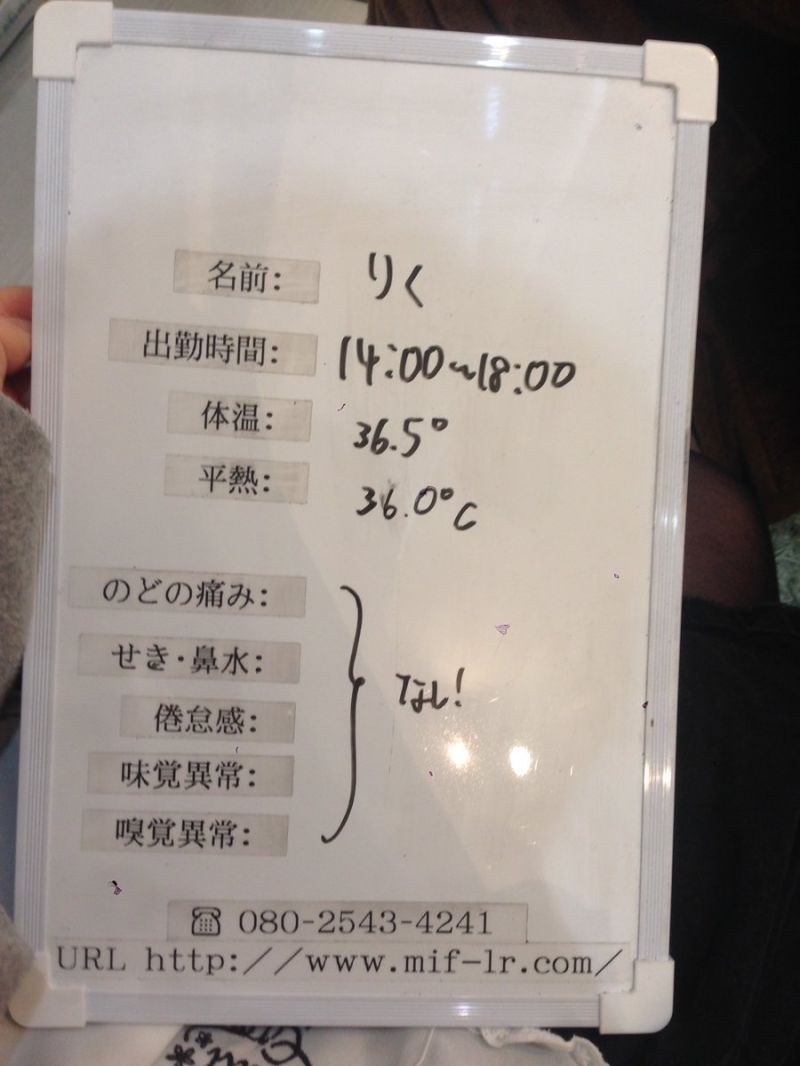 名前: りく
出勤時間: 14:00~18:00
体温: 36.5°
平熱: 36.0°C
のどの痛み:
せき・鼻水:
倦怠感: なし!
味覚異常:
嗅覚異常:
☏ 080-2543-4241
URL http://www.mif-lr.com/